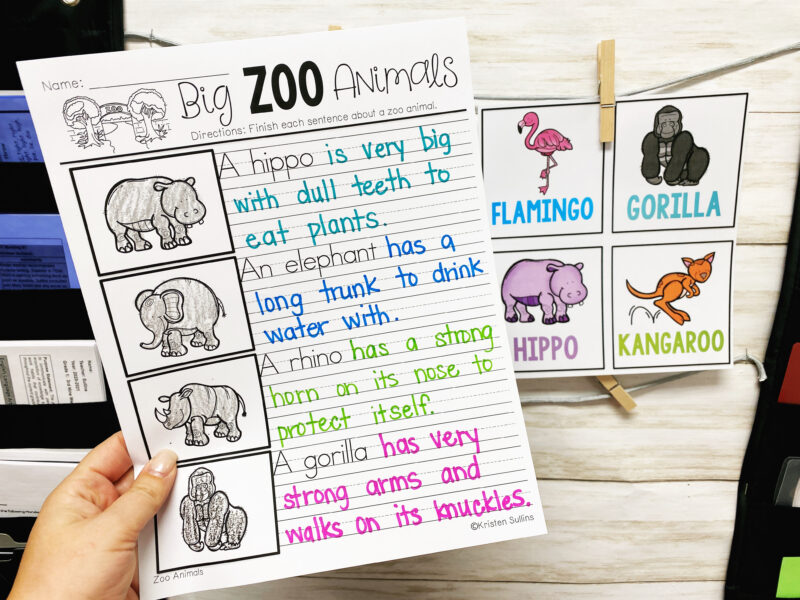 Name:
Big ZOO Animals
ZOO
Directions: Finish each sentence about a zoo animal.
A hippo is very big
with dull teeth to
eat plants.
An elephant has a
long trunk to drink
water with.
A rhino has a strong
horn on its nose to
protect itself.
A gorilla has very
strong arms and
walks on its knuckles.
©Kristen Sullins
Zoo Animals
FLAMINGO
GORILLA
HIPPO
KANGAROO